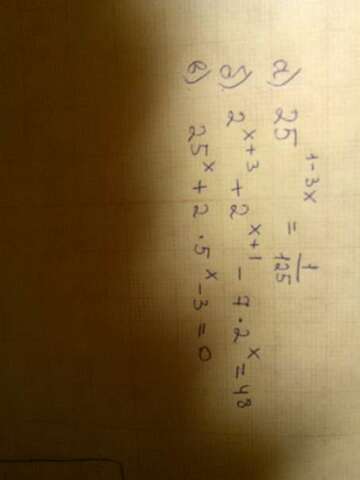 а) 25^{1-3x} = \frac{1}{125}
б) 2^{x+3} + 2^{x+1} - 7 · 2^x = 48
в) 25^x + 2 · 5^x - 3 = 0